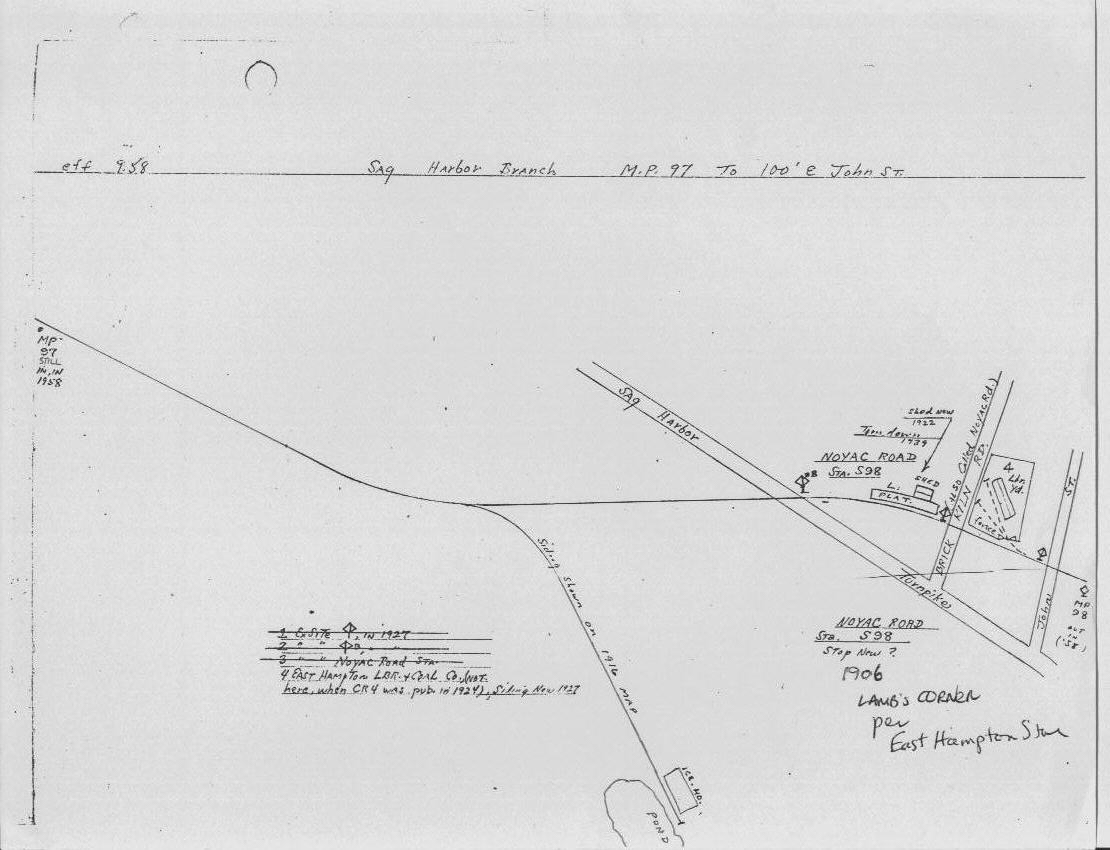 eff 9.58 Sag Harbor Branch M.P. 97 To 100' e John St.
MP
97
STILL
IN, IN
1958
Sag Harbor
Turnpike
Shed New
1922
Torn down
1939
NOYAC ROAD
STA. S98
L.
PLAT.
SHED
BRICK KILN RD.
(ALSO Called NOYAC Rd.)
4
Lbr.
Yd.
fence
John ST.
MP
98
OUT
('58)
Siding Shown on 1916 MAP
ICE. HO.
POND
1 ExSite , IN 1927
2 " "
3 " " NOYAC ROAD STA.
4 EAST HAMPTON LBR. & COAL Co. (NOT
here, when CR4 was pub. in 1924), Siding New 1927
NOYAC ROAD
Sta. S98
Stop New ?
1906
LAMB'S CORNER
per
East Hampton Star